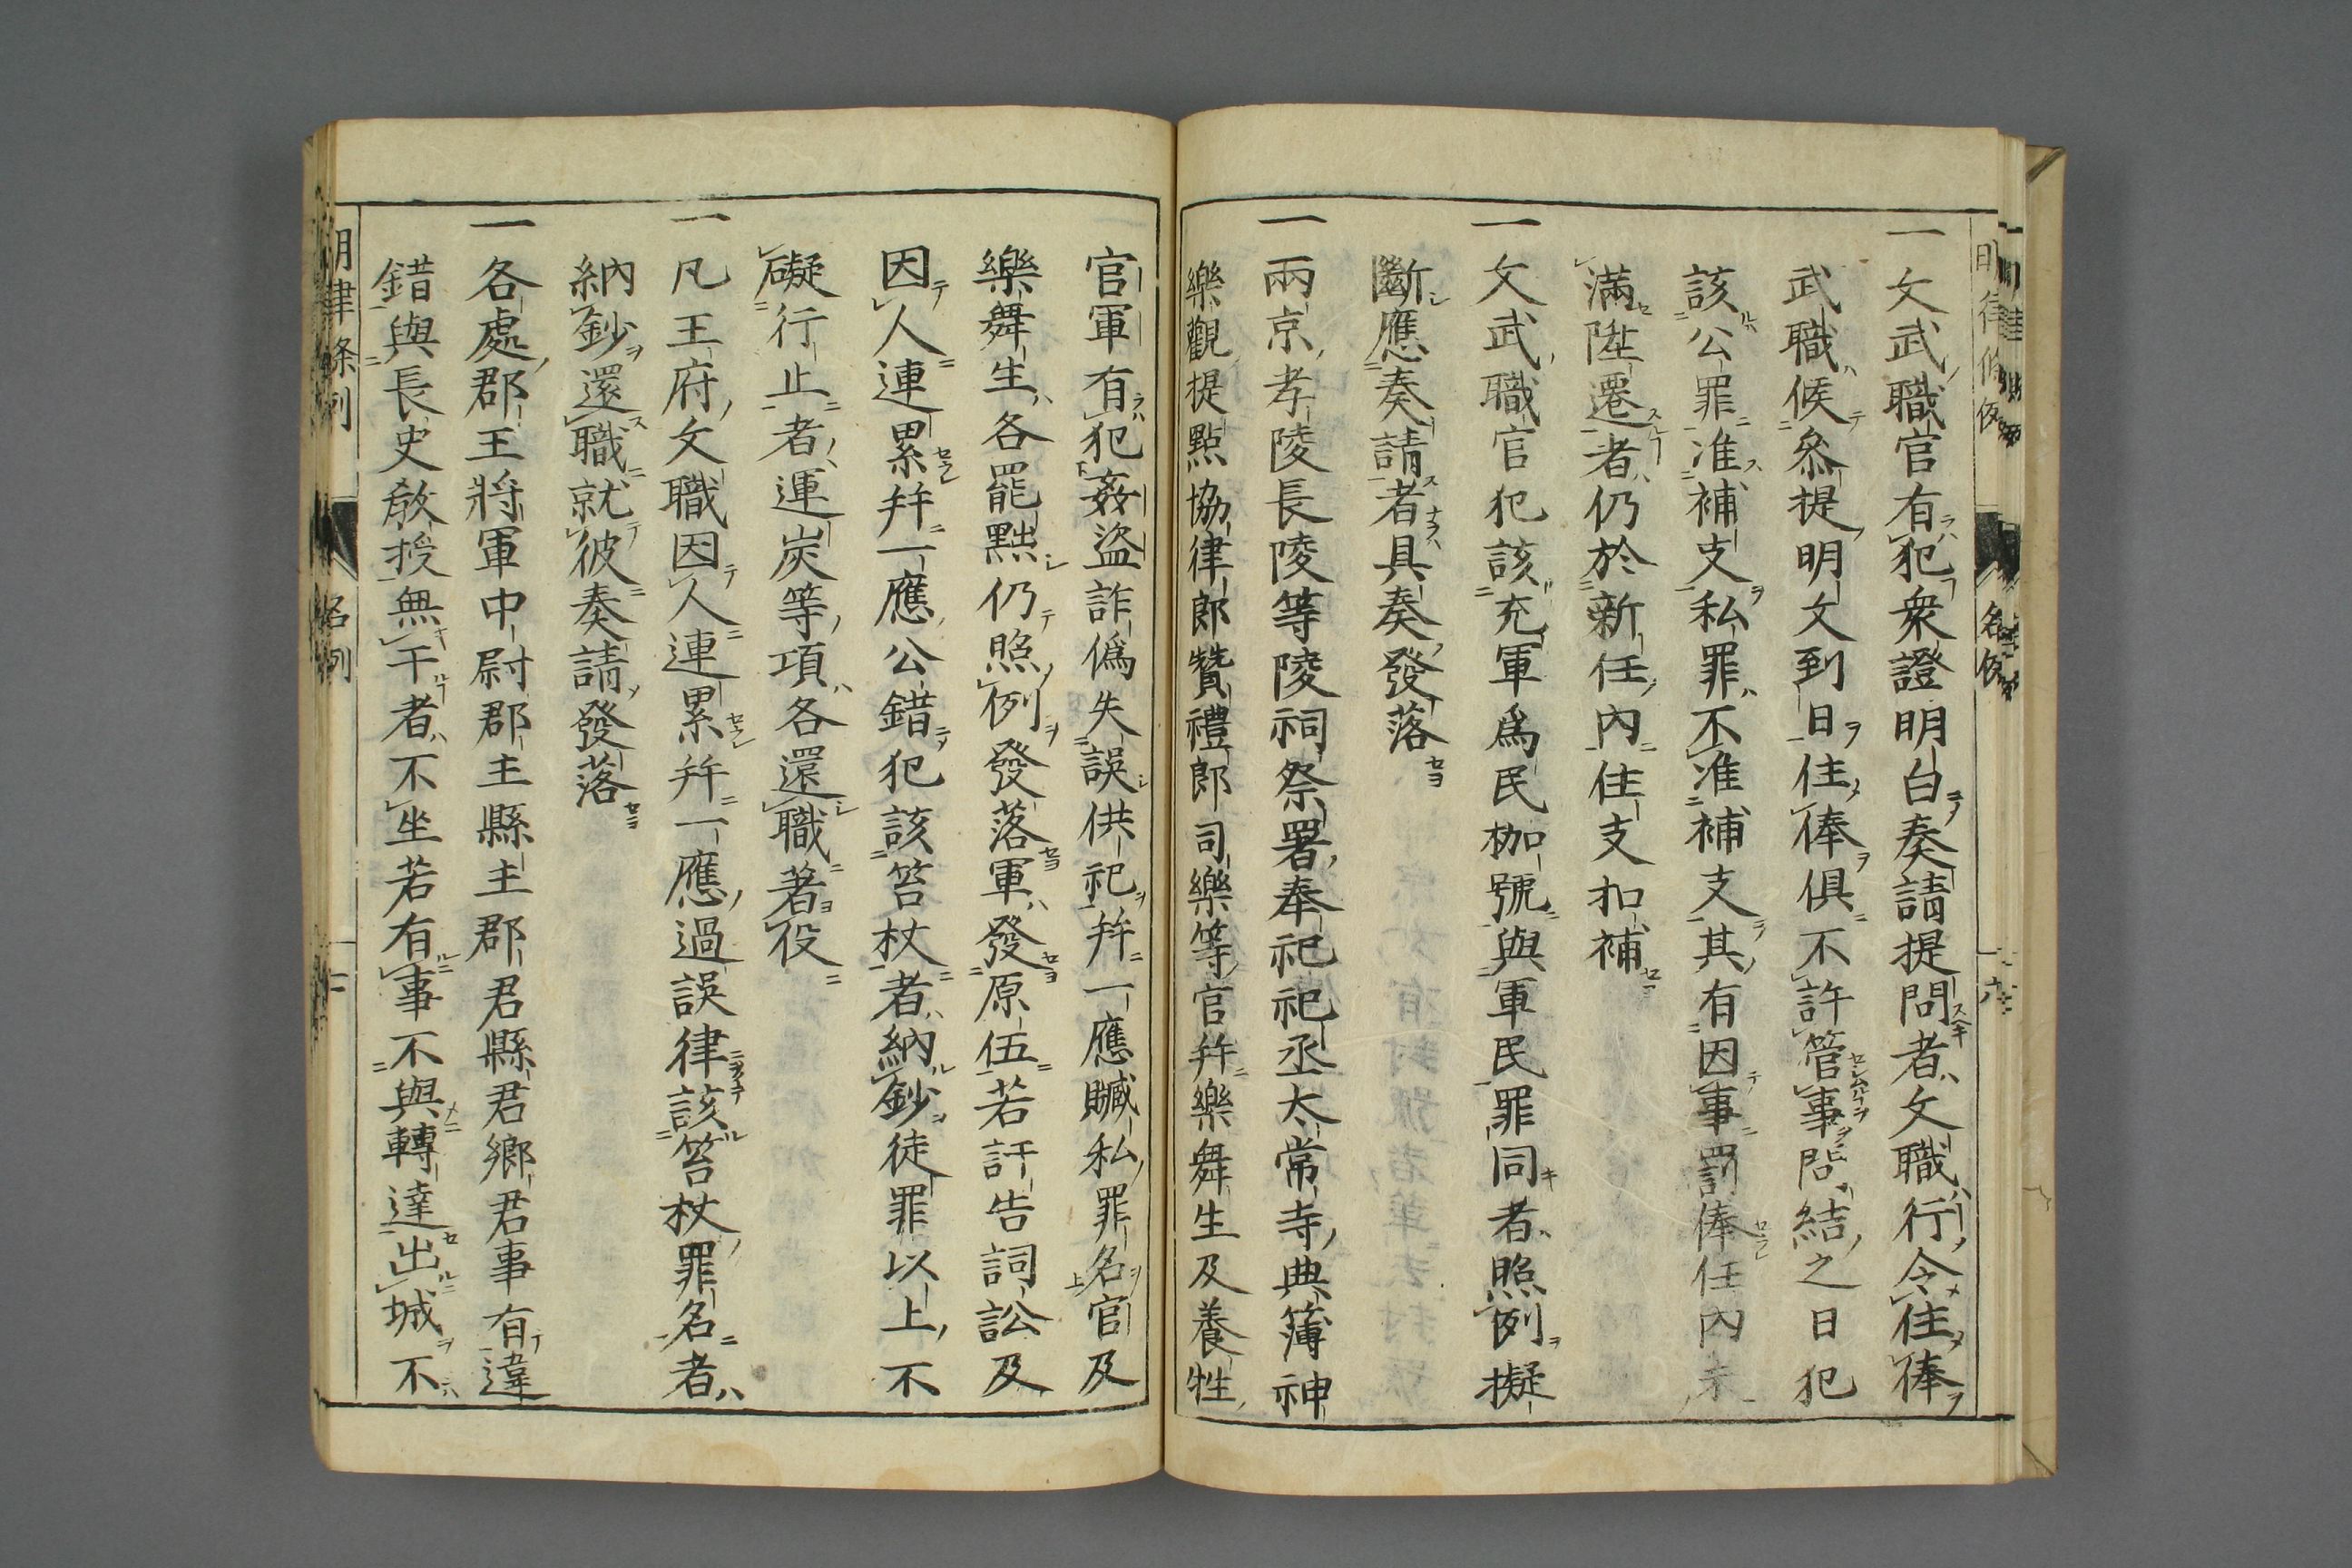 一文武職官有犯衆證明白奏請提問者文職行令住俸
武職候叅提明文到日住俸俱不許管事問結之日犯
該公罪准補支私罪不准補支其有因事罰俸任內未
滿陞遷者仍於新任內住支扣補
一文武職官犯該充軍爲民枷號與軍民罪同者照例擬
斷應奏請者具奏發落
一兩京孝陵長陵等陵祠祭署奉祀祀丞太常寺典簿神
樂觀提點協律郎贊禮郎司樂等官幷樂舞生及養牲
官軍有犯姦盜詐僞失誤供祀幷一應贓私罪名官及
樂舞生各罷黜仍照例發落軍發原伍若訐告詞訟及
因人連累幷一應公錯犯該笞杖者納鈔徒罪以上不
礙行止者運炭等項各還職著役
一凡王府文職因人連累幷一應過誤律該笞杖罪名者
納鈔還職就彼奏請發落
一各處郡王將軍中尉郡主縣主郡君縣君鄉君事有違
錯與長史敎授無干者不坐若有事不與轉達出城不
明律條例 名例